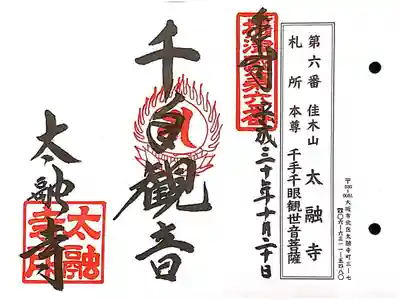 第六番 佳木山 太融寺
札所 本尊 千手千眼観世音菩薩
大阪市北区太融寺町三-七
奉司 平成三十年十月二十日
千手観音
太融寺
太融寺印